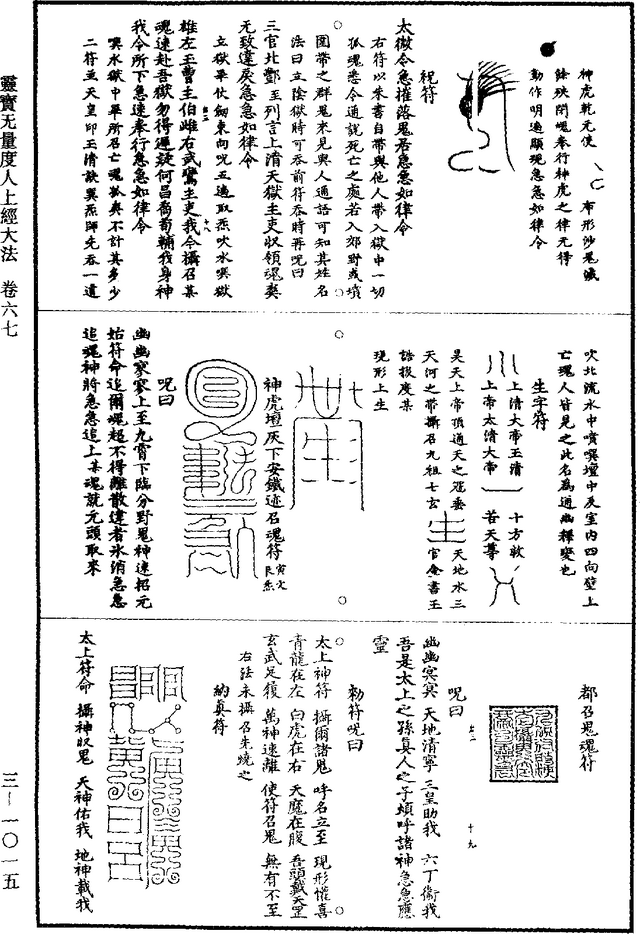 神虎乾元使 布形沙鬼滅
餘殃閉魂奉行神虎之律无得
動作明過顯現急急如律令
祝符
太微令急摧落鬼君急急如律令
右符以朱書自帶與他人帶入獄中一切
孤魂悉令通說死亡之處若入郊野或墳
圍帶之群鬼來見與人通話可知其姓名
法曰立陰獄時可吞前符吞時再呪曰
三官北酆至列言上清天獄主吏收領魂爽
无致違戾急急如律令
立獄畢仗劒東向呪五遍取炁吹水噀獄
雄左王曹主伯雌右武鸞主吏我今攝召某
魂速赴吾獄勿得遲疑何昌喬荀輔我身神
我令所下急速奉行急急如律令
噀水獄中畢所召亡魂孤爽不計其多少
二符並天皇印玉清訣巽炁師先吞一道
吹北流水中噴噀壇中及室內四向壁上
亡魂人皆見之此名為通幽釋變也
生字符
上清大帝玉清 十方救
上帝太清大帝 苦天尊
昊天上帝頂通天之冠垂 天地水三
天河之帶攝召九祖七玄 官僉書玉
誥拔度某
現形上生
神虎壇灰下安鐵迹召魂符 寅文艮炁
呪曰
幽幽寥寥上至九霄下臨分野鬼神速招元
始符命追爾魂超不得離散違者氷消急急
追魂神將急急追上某魂就元頭取來
都召鬼魂符
呪曰
幽幽冥冥 天地清寧 三皇助我 六丁衞我
吾是太上之孫真人之子頻呼諸神急急應
靈
勑符呪曰
太上神符 攝爾諸鬼 呼名立至 現形懽喜
青龍在左 白虎在右 天魔在腹 吾頭戴天罡
玄武足履 萬神速離 使符召鬼 無有不至
右法未攝召先燒之
納真符
太上符命 攝神收鬼 天神佑我 地神載我
靈寶无量度人上經大法 卷六七
三-一〇一五